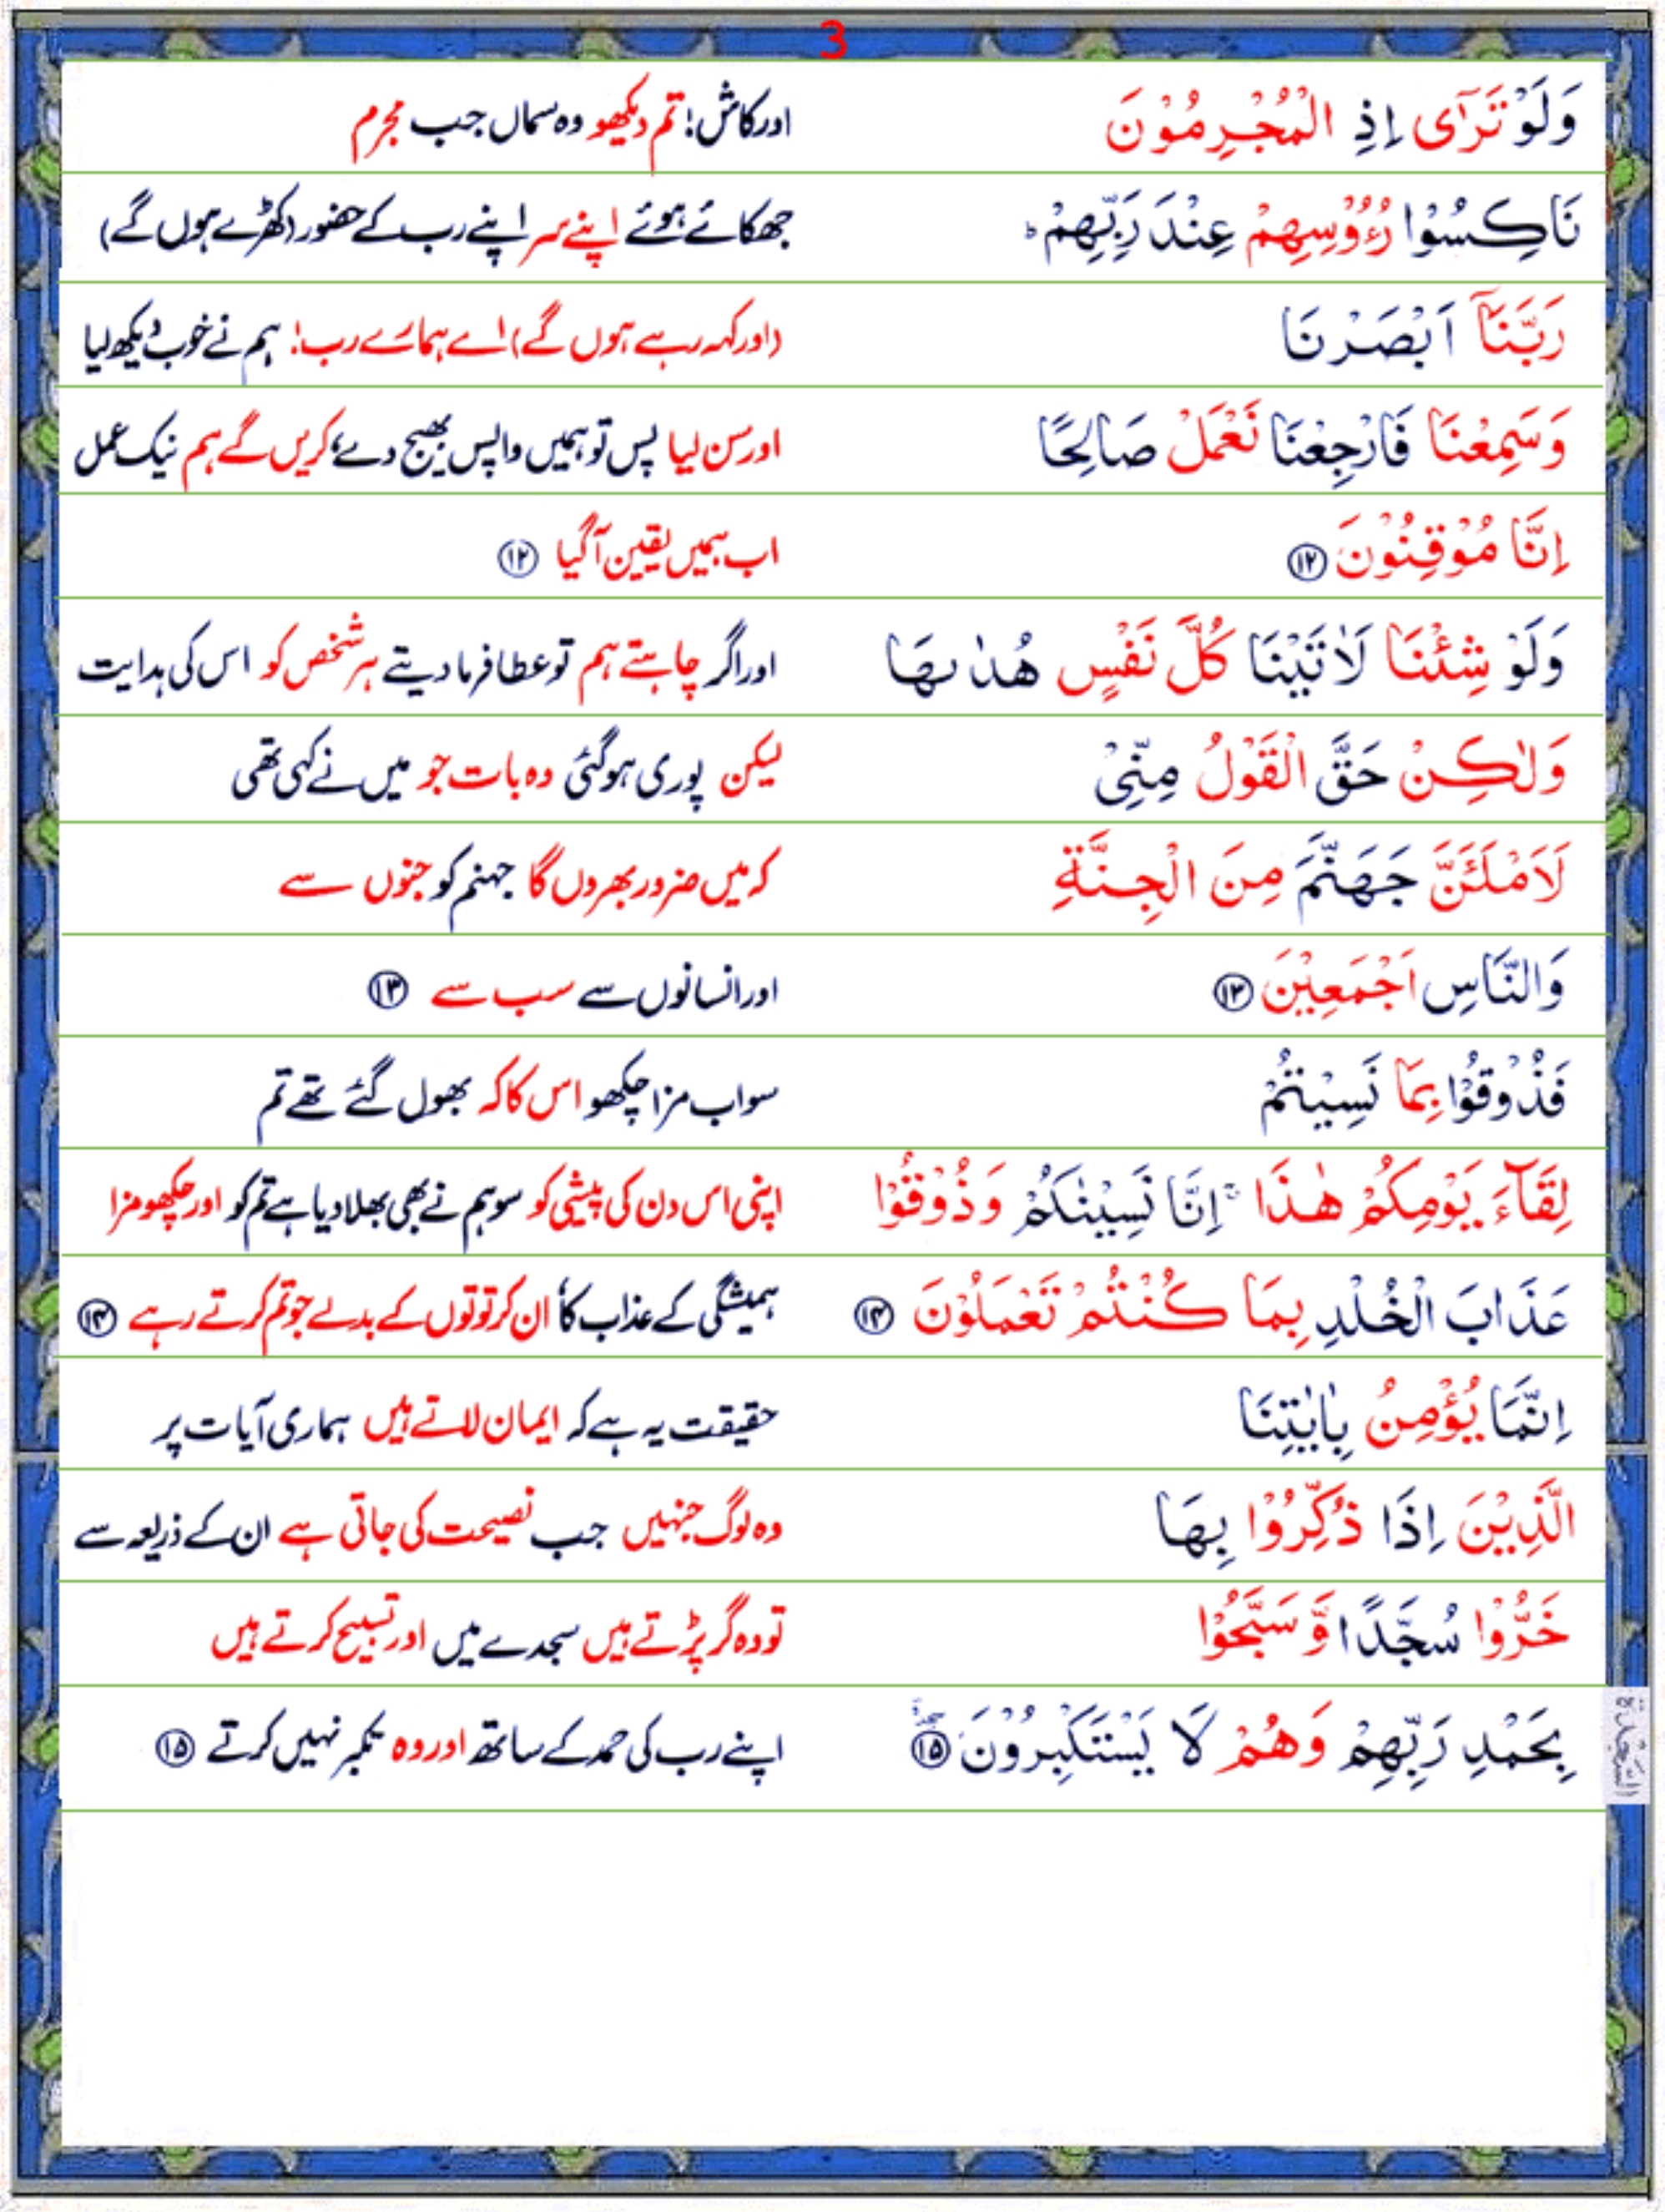 3
وَلَوْ تَرٰٓى اِذِ الْمُجْرِمُوْنَ اور کاش! تم دیکھو وہ سماں جب مجرم
نَاكِسُوْا رُءُوْسِهِمْ عِنْدَ رَبِّهِمْ ؕ جھکائے ہوئے اپنے سر اپنے رب کے حضور (کھڑے ہوں گے)
رَبَّنَاۤ اَبْصَرْنَا (اور کہہ رہے ہوں گے) اے ہمارے رب! ہم نے خوب دیکھ لیا
وَسَمِعْنَا فَارْجِعْنَا نَعْمَلْ صَالِحًا اور سن لیا پس تو ہمیں واپس بھیج دے، کریں گے ہم نیک عمل
اِنَّا مُوْقِنُوْنَ ۱۲ اب ہمیں یقین آگیا ۱۲
وَلَوْ شِئْنَا لَاٰتَيْنَا كُلَّ نَفْسٍ هُدٰىهَا اور اگر چاہتے ہم تو عطا فرما دیتے ہر شخص کو اس کی ہدایت
وَلٰكِنْ حَقَّ الْقَوْلُ مِنِّىْ لیکن پوری ہوگئی وہ بات جو میں نے کہی تھی
لَاَمْلَـَٔنَّ جَهَنَّمَ مِنَ الْجِنَّةِ کہ میں ضرور بھر دوں گا جہنم کو جنوں سے
وَالنَّاسِ اَجْمَعِيْنَ ۱۳ اور انسانوں سے سب سے ۱۳
فَذُوْقُوْا بِمَا نَسِيْتُمْ سو اب مزا چکھو اس کا کہ بھول گئے تھے تم
لِقَآءَ يَوْمِكُمْ هٰذَا ۚ اِنَّا نَسِيْنٰكُمْ وَذُوْقُوْا اپنی اس دن کی پیشی کو سو ہم نے بھی بھلا دیا ہے تم کو اور چکھو مزا
عَذَابَ الْخُلْدِ بِمَا كُنْتُمْ تَعْمَلُوْنَ ۱۴ ہمیشگی کے عذاب کا، ان کرتوتوں کے بدلے جو تم کرتے رہے ۱۴
اِنَّمَا يُؤْمِنُ بِاٰيٰتِنَا حقیقت یہ ہے کہ ایمان لاتے ہیں ہماری آیات پر
الَّذِيْنَ اِذَا ذُكِّرُوْا بِهَا وہ لوگ جنہیں جب نصیحت کی جاتی ہے ان کے ذریعہ سے
خَرُّوْا سُجَّدًا وَّ سَبَّحُوْا تو وہ گر پڑتے ہیں سجدے میں اور تسبیح کرتے ہیں
بِحَمْدِ رَبِّهِمْ وَهُمْ لَا يَسْتَكْبِرُوْنَ ۱۵ اپنے رب کی حمد کے ساتھ اور وہ تکبر نہیں کرتے ۱۵
السَّجْدَة